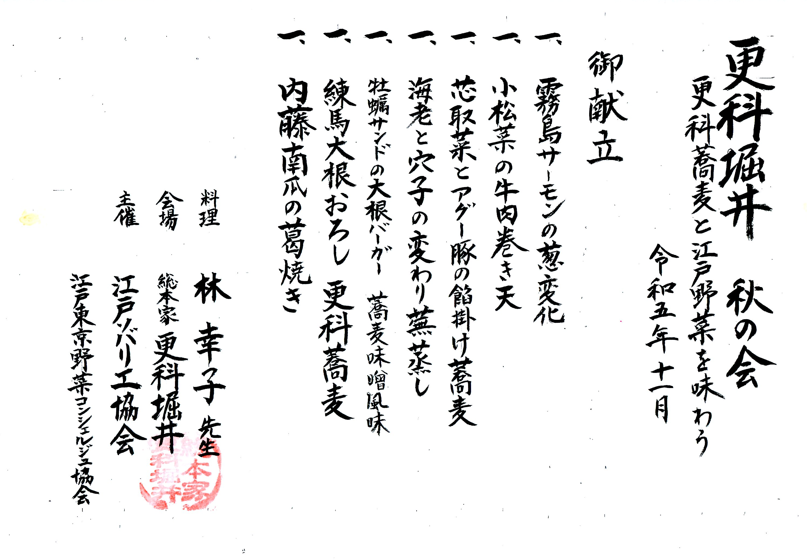 更科堀井 秋の会
更科蕎麦と江戸野菜を味わう
令和五年十一月
御献立
一、霧島サーモンの葱変化
一、小松菜の牛肉巻き天
一、芯取菜とアグー豚の餡掛け蕎麦
一、海老と穴子の変わり蕪蒸し
一、牡蠣サンドの大根バーガー 蕎麦味噌風味
一、練馬大根おろし 更科蕎麦
一、内藤南瓜の葛焼き
料理 林幸子先生
会場 総本家 更科堀井
主催 江戸ソバリエ協会
江戸東京野菜コンシェルジュ協会